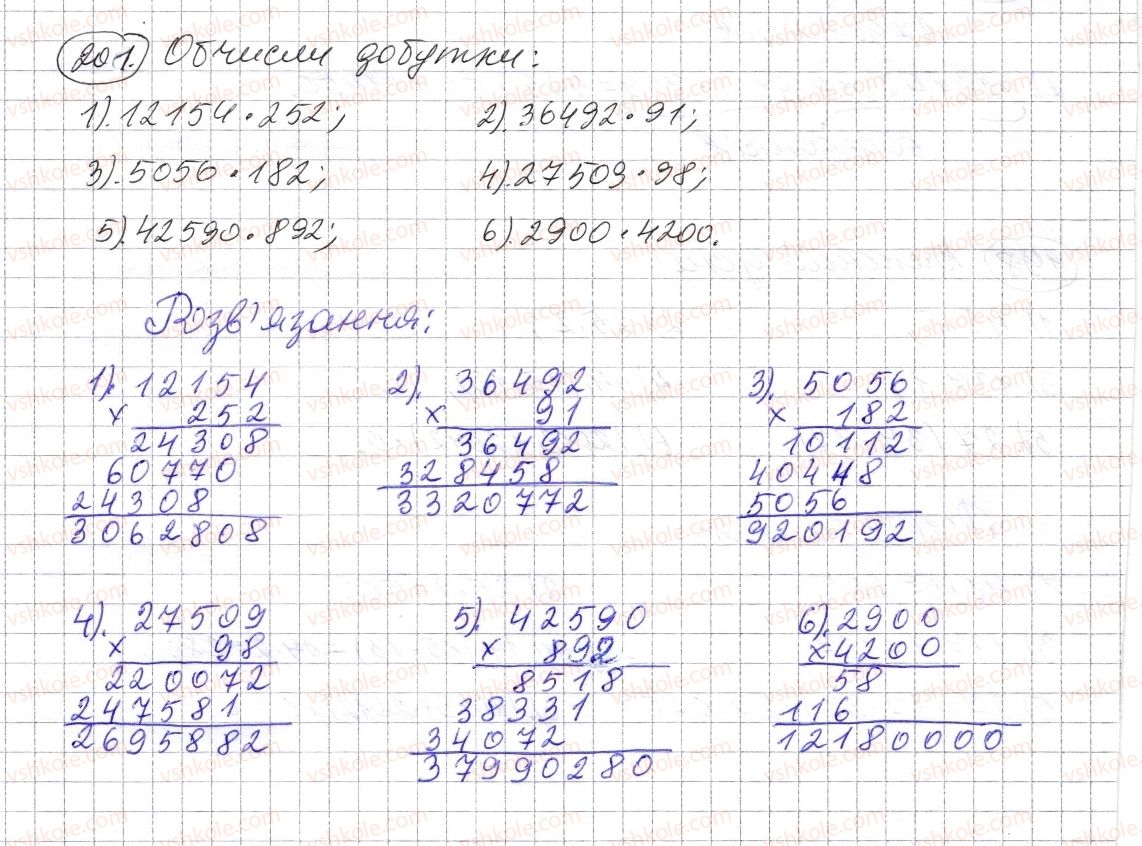 201. Обчисли добутки:
1). 12154 · 252; 2). 36492 · 91;
3). 5056 · 182; 4). 27509 · 98;
5). 42590 · 892; 6). 2900 · 4200.
Розв'язання:
1). 12154
× 252
24308
60770
24308
3062808
2). 36492
× 91
36492
328458
3320772
3). 5056
× 182
10112
40448
5056
920192
4). 27509
× 98
220072
247581
2695882
5). 42590
× 892
8518
38331
34072
37990280
6). 2900
× 4200
58
116
12180000